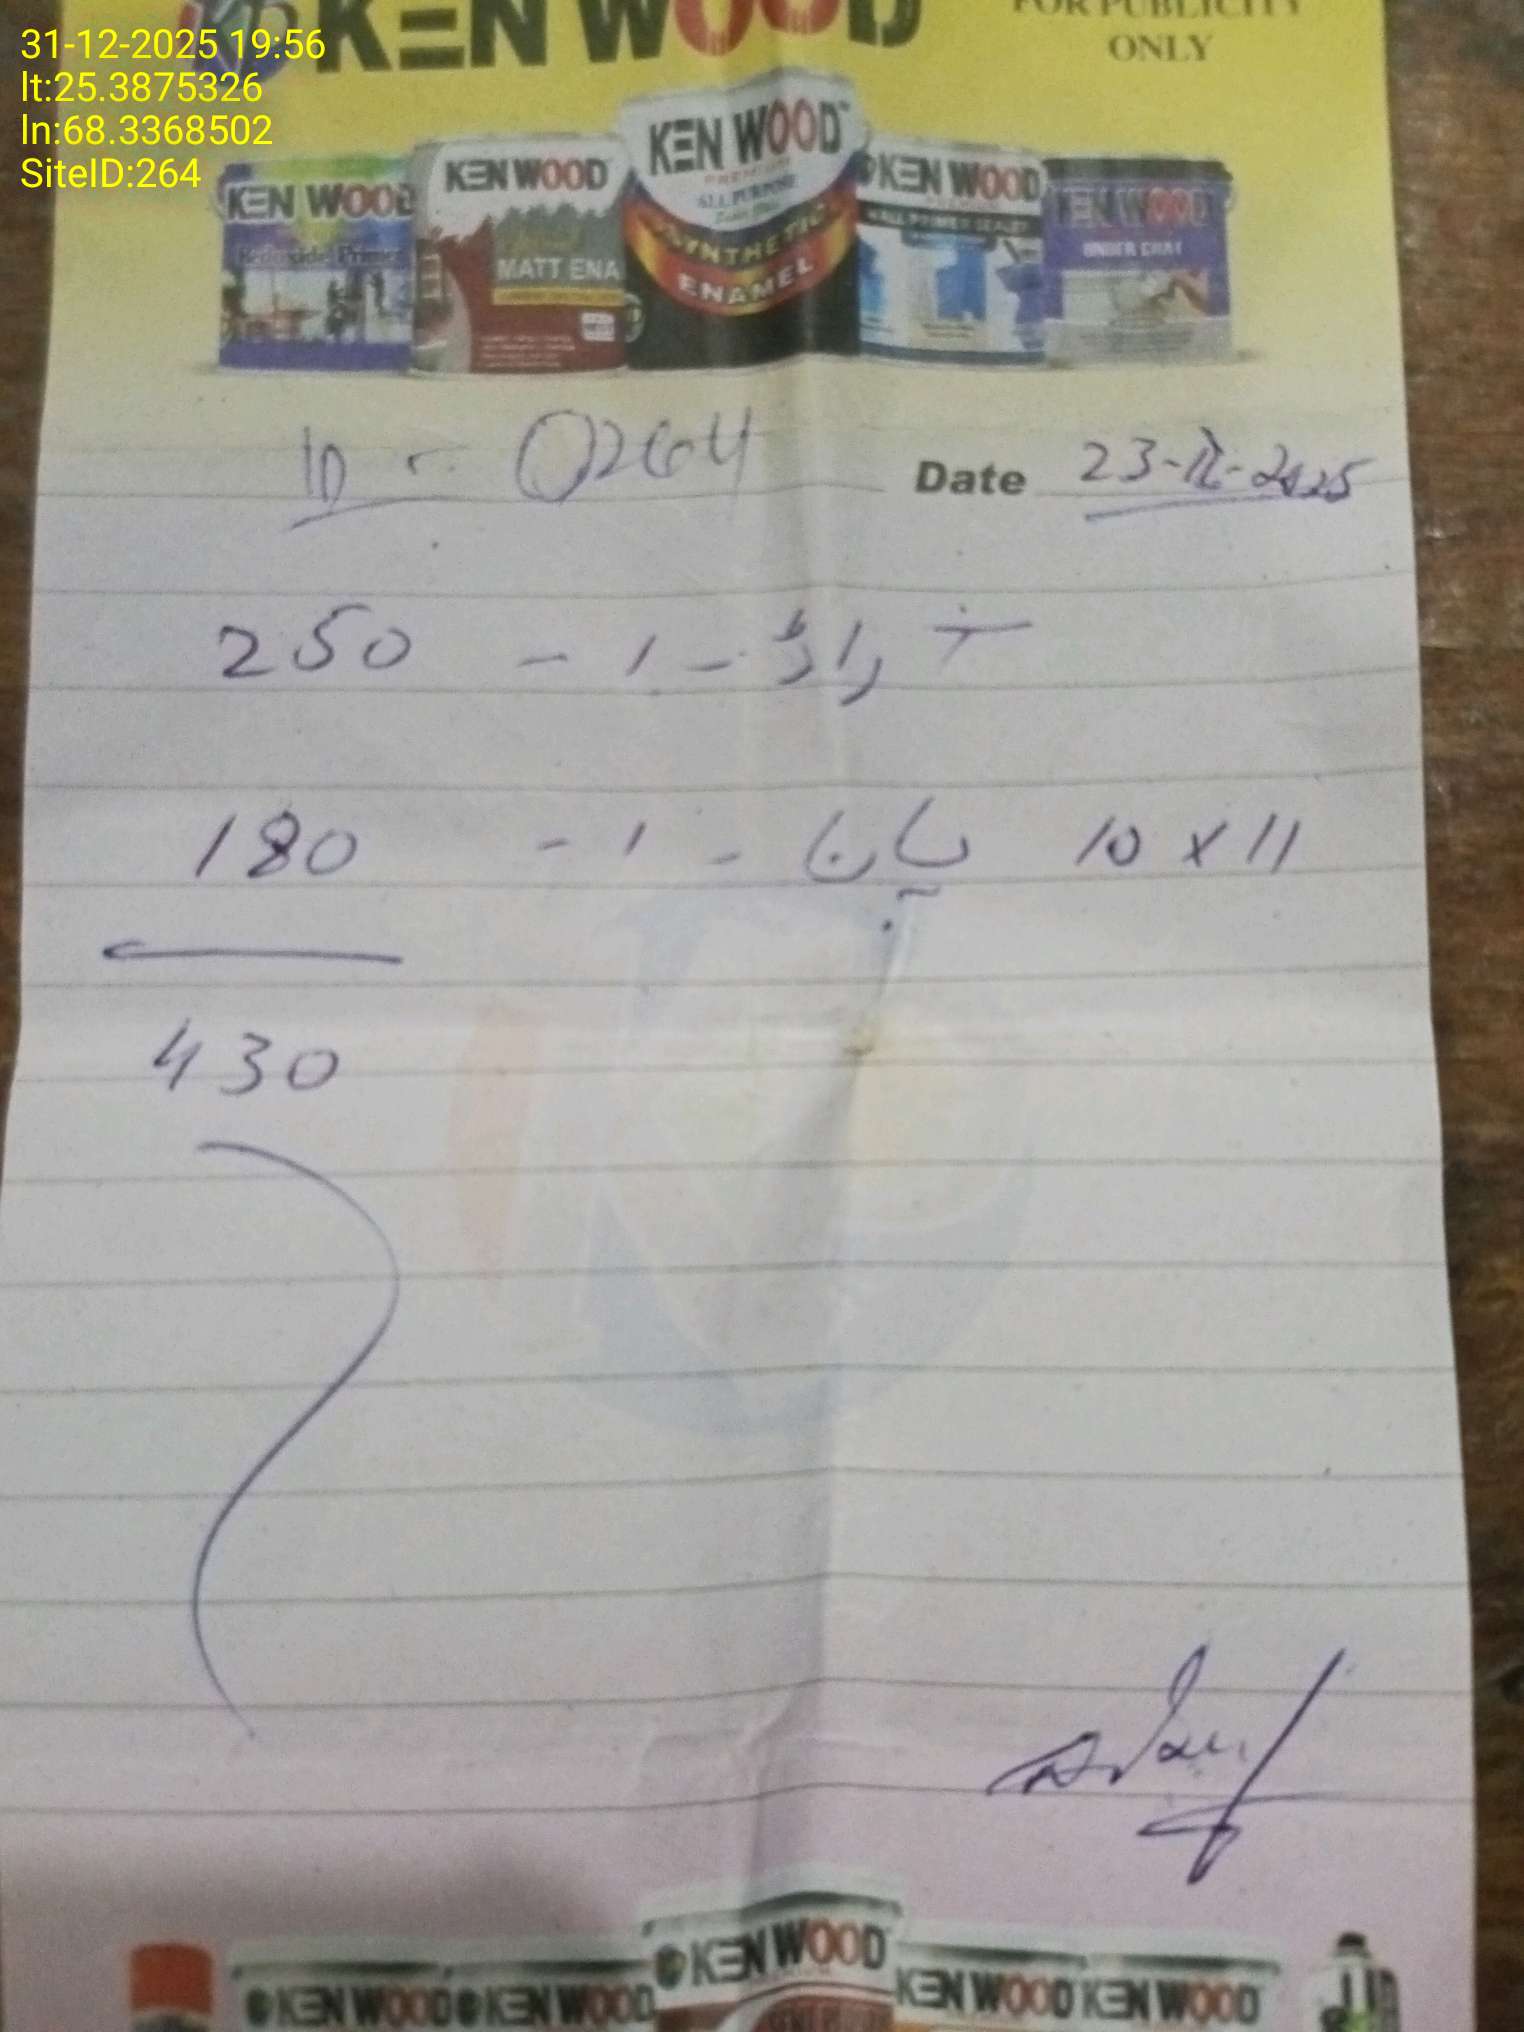 31-12-2025 19:56
lt:25.3875326
ln:68.3368502
SiteID:264
KEN WOOD
FOR PUBLICITY
ONLY
KEN WOOD
Redoxide Primer
KEN WOOD
MATT ENA
KEN WOOD
ALL PURPOSE
SYNTHETIC
ENAMEL
KEN WOOD
WALL PRIMER SEALER
KEN WOOD
UNDER COAT
ID - 0264
Date 23-12-2025
250 - 1 -
10 x 11 پانا - 1 - 180
430
KEN WOOD
KEN WOOD
KEN WOOD
KEN WOOD
KEN WOOD